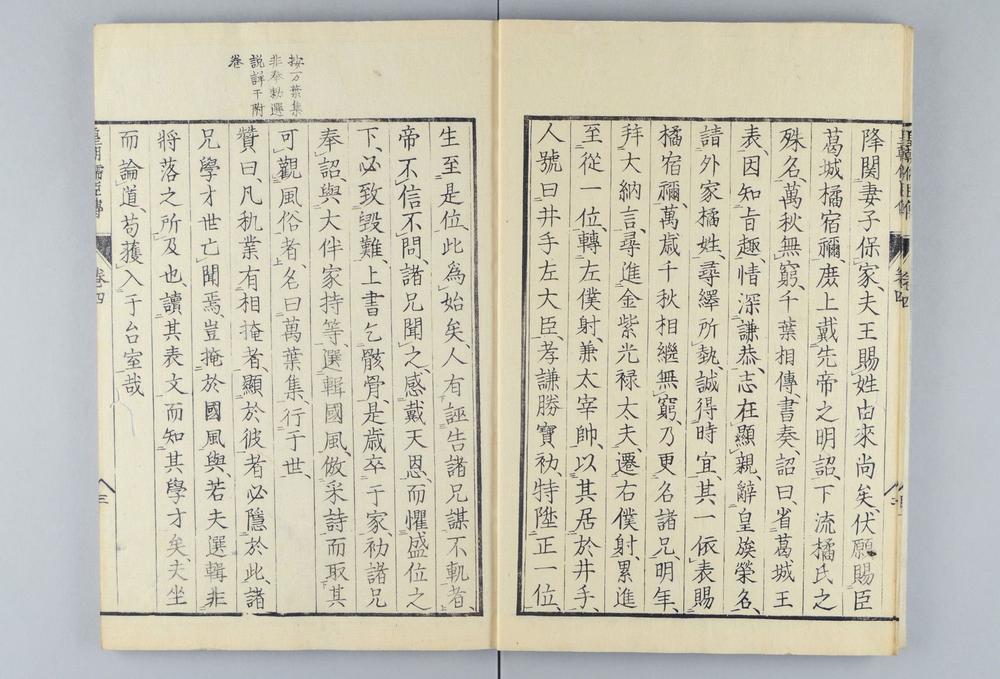 降関妻子保家夫王賜姓由來尚矣伏願賜臣
葛城橘宿禰庻上戴先帝之明詔下流橘氏之
殊名萬秋無窮千葉相傳書奏詔曰省葛城王
表因知旨趣情深謙恭志在顯親辭皇族榮名
請外家橘姓尋繹所執誠得時宜其一依表賜
橘宿禰萬歳千秋相繼無窮乃更名諸兄明年
拜大納言尋進金紫光禄太夫遷右僕射累進
至從一位轉左僕射兼太宰帥以其居於井手
人號曰井手左大臣孝謙勝寶初特陞正一位
按万葉集
非奉勅選
説詳于附
卷
生至是位此為始矣人有誣告諸兄謀不軌者
帝不信不問諸兄聞之感戴天恩而懼盛位之
下必致毀難上書乞骸骨是歳卒于家初諸兄
奉詔與大伴家持等選輯國風倣采詩而取其
可觀風俗者名曰萬葉集行于世
贊曰凡秇業有相掩者顯於彼者必隱於此諸
兄學才世亡聞焉豈掩於國風與若夫選輯非
將落之所及也讀其表文而知其學才矣夫坐
而論道苟獲入于台室哉
皇朝儒臣傳
卷四
三